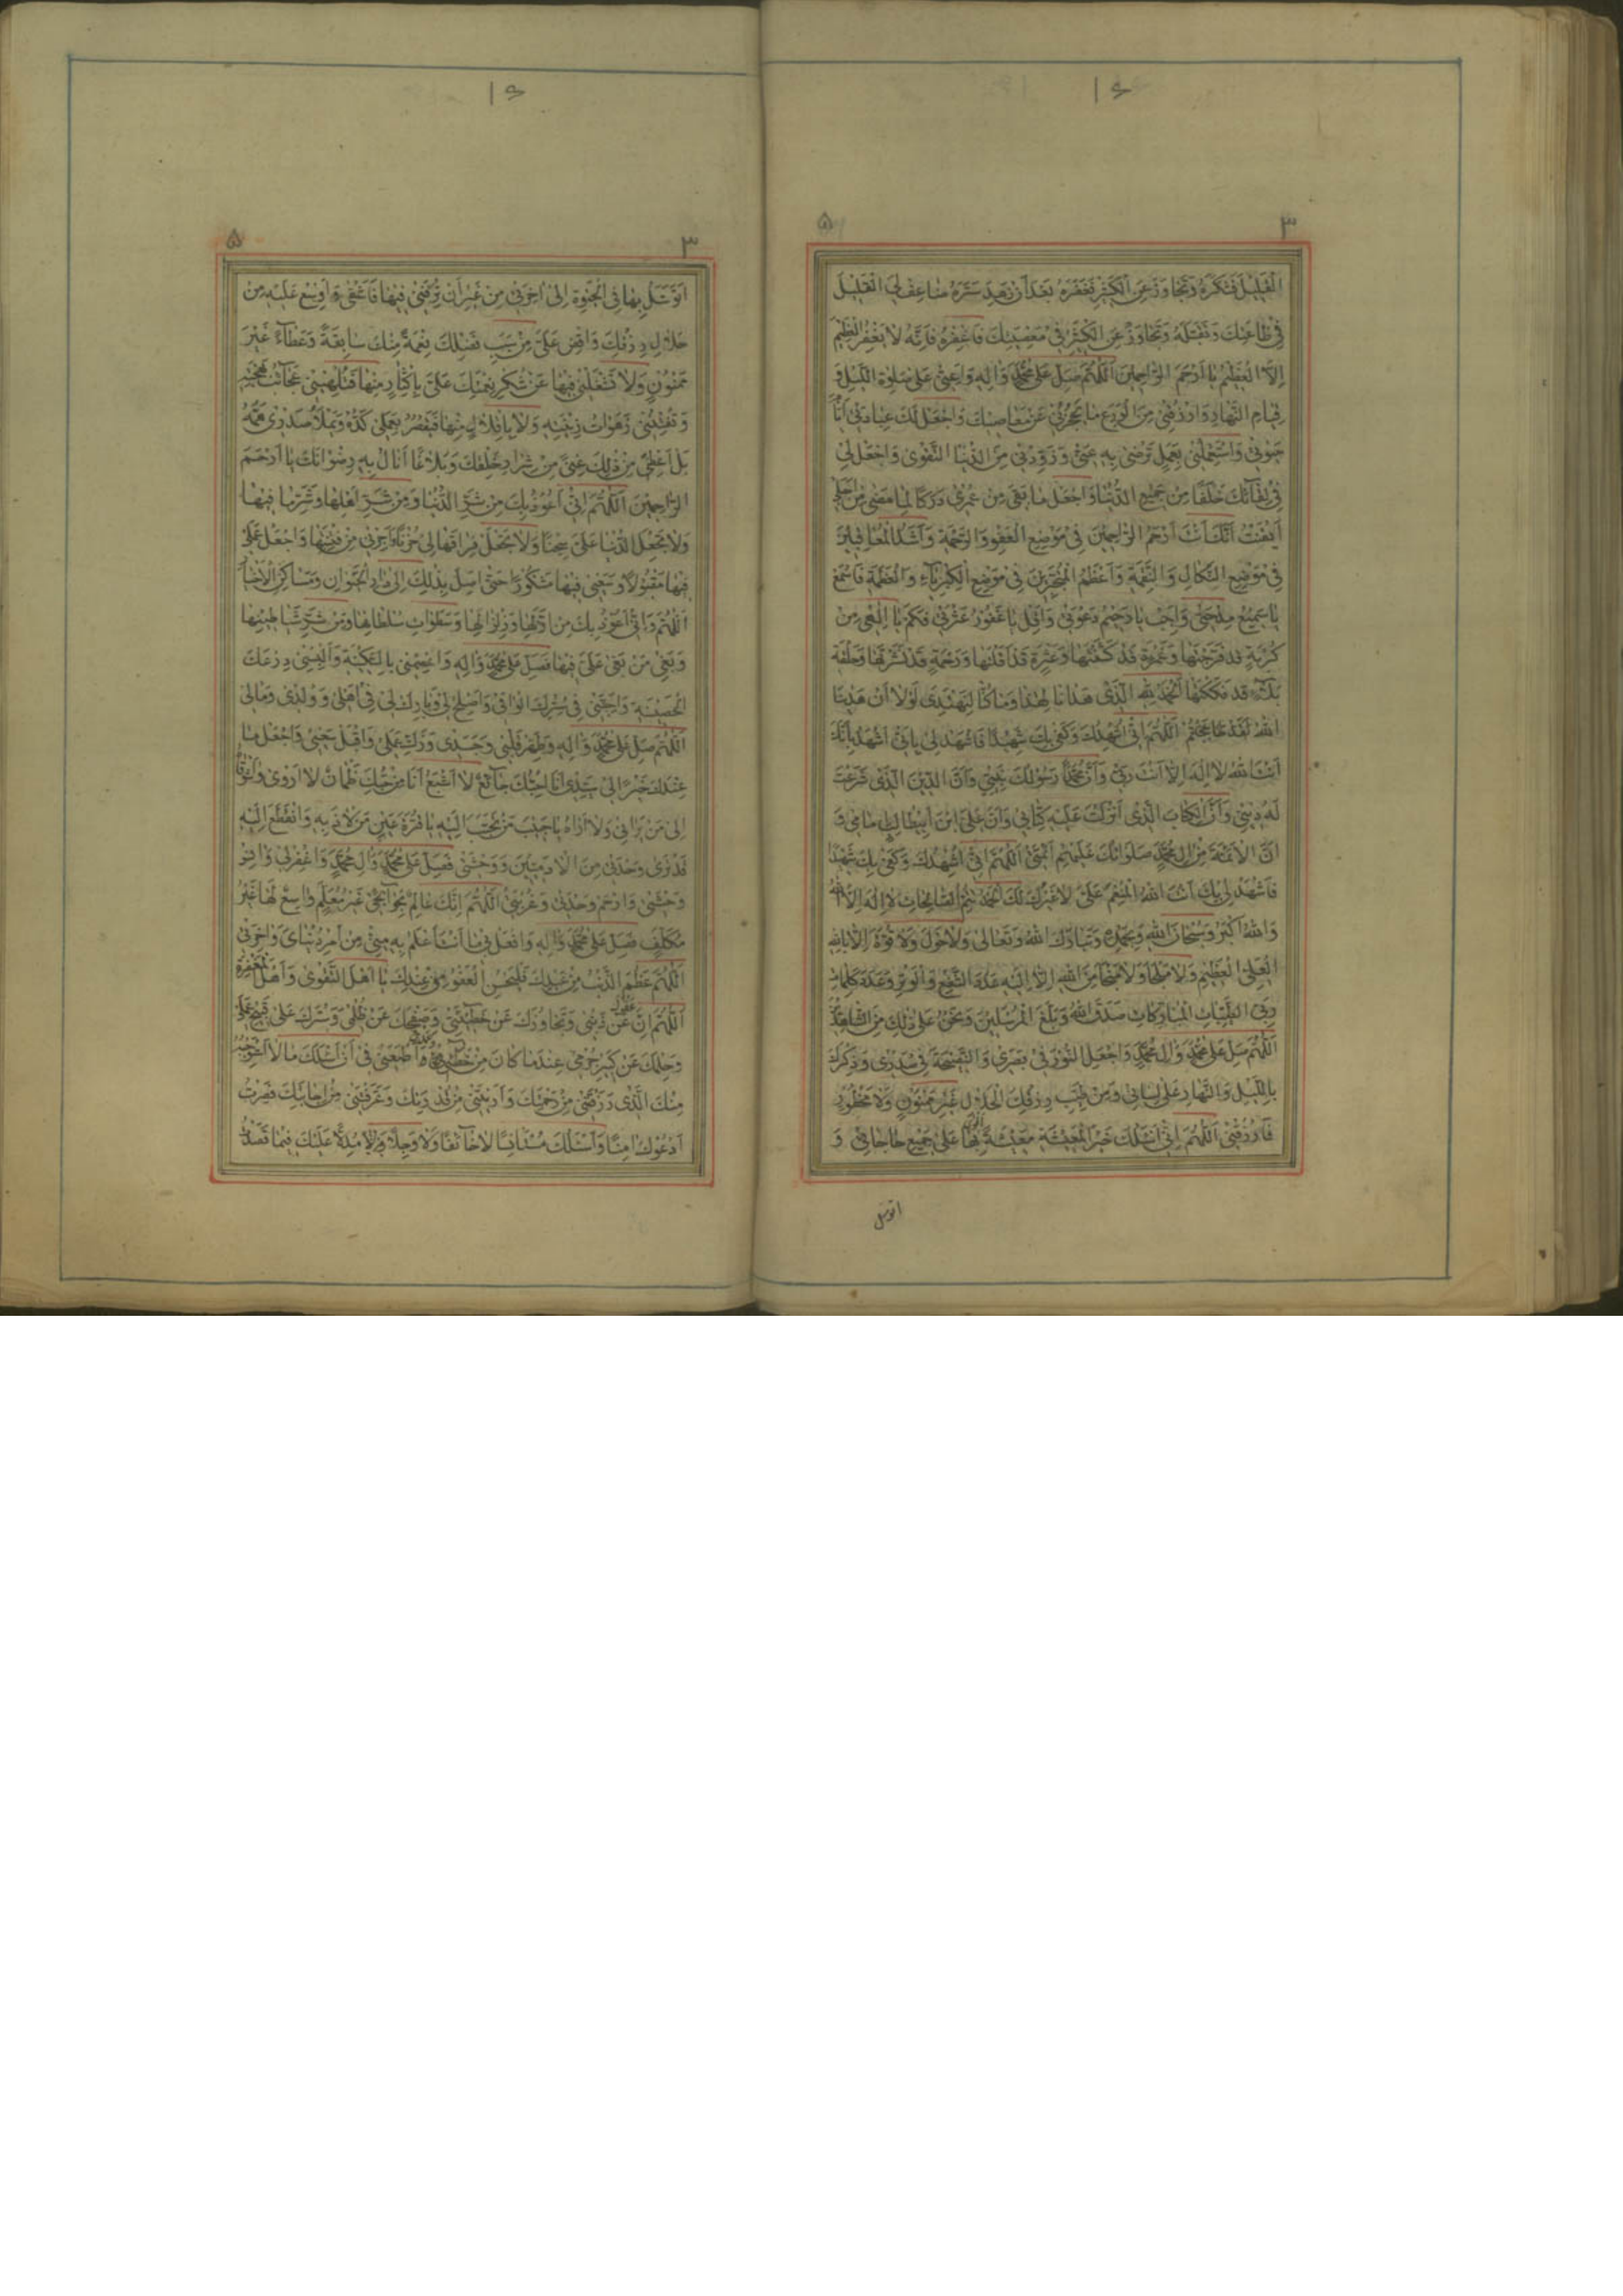 القَلِيلَ فَتَشْكُرُهُ وَتَجَاوَزُ عَنِ الْكَثِيرِ فَتَغْفِرُهُ بَعْدَ أَنْ سَتَرَهُ ضاعِفْ لِيَ القَلِيلَ
فِي طَاعَتِكَ وَتَقَبَّلْهُ وَتَجَاوَزْ عَنِ الْكَثِيرِ فِي مَعْصِيَتِكَ فَاغْفِرْهُ فَإِنَّهُ لَا يَغْفِرُ الْعَظِيمَ
إِلَّا الْعَظِيمُ يَا أَرْحَمَ الرَّاحِمِينَ اَللّٰهُمَّ صَلِّ عَلَى مُحَمَّدٍ وَآلِهِ وَأَعِنِّي عَلَى صَلٰوةِ اللَّيْلِ وَ
قِيَامِ النَّهَارِ وَارْزُقْنِي مِنَ الْوَرَعِ مَا يَحْجُزُنِي عَنْ مَعَاصِيكَ وَاجْعَلْ لَكَ عِبَادَتِي
حَيٰوتِي وَاسْتَعْمِلْنِي بِعَمَلٍ تَرْضٰى بِهِ عَنِّي وَزَوِّدْنِي مِنَ الدُّنْيَا التَّقْوٰى وَاجْعَلْ لِي
فِي لِقَائِكَ خَلَفًا مِنْ جَمِيعِ الدُّنْيَا وَاجْعَلْ مَا بَقِيَ مِنْ عُمْرِي دَرَكًا لِمَا مَضٰى مِنْ أَجَلِي
أَيْقَنْتُ أَنَّكَ أَنْتَ أَرْحَمُ الرَّاحِمِينَ فِي مَوْضِعِ الْعَفْوِ وَالرَّحْمَةِ وَأَشَدُّ الْمُعَاقِبِينَ
فِي مَوْضِعِ النَّكَالِ وَالنَّقِمَةِ وَأَعْظَمُ الْمُتَجَبِّرِينَ فِي مَوْضِعِ الْكِبْرِيَاءِ وَالْعَظَمَةِ فَاسْمَعْ
يَا سَمِيعُ مِدْحَتِي وَأَجِبْ يَا رَحِيمُ دَعْوَتِي وَأَقِلْ يَا غَفُورُ عَثْرَتِي فَكَمْ يَا إِلٰهِي مِنْ
كُرْبَةٍ قَدْ فَرَّجْتَهَا وَغَمْرَةٍ قَدْ كَشَفْتَهَا وَعَثْرَةٍ قَدْ أَقَلْتَهَا وَرَحْمَةٍ قَدْ نَشَرْتَهَا وَحَلْقَةِ
بَلَاءٍ قَدْ فَكَكْتَهَا اَلْحَمْدُ لِلّٰهِ الَّذِي هَدٰانَا لِهٰذَا وَمَا كُنَّا لِنَهْتَدِيَ لَوْلَا أَنْ هَدٰانَا
اللهُ اَللّٰهُمَّ إِنِّي أُشْهِدُكَ وَكَفٰى بِكَ شَهِيدًا فَاشْهَدْ لِي بِأَنِّي أَشْهَدُ بِأَنَّكَ
أَنْتَ اللهُ لَا إِلٰهَ إِلَّا أَنْتَ رَبِّي وَأَنَّ مُحَمَّدًا رَسُولَكَ نَبِيِّي وَأَنَّ الدِّينَ الَّذِي شَرَعْتَ
لَهُ دِينِي وَأَنَّ الْكِتَابَ الَّذِي أَنْزَلْتَ عَلَيْهِ كِتَابِي وَأَنَّ عَلِيَّ ابْنَ أَبِيطَالِبٍ إِمَامِي وَ
أَنَّ الْأَئِمَّةَ مِنْ آلِ مُحَمَّدٍ صَلَوَاتُكَ عَلَيْهِمْ أَئِمَّتِي اَللّٰهُمَّ إِنِّي أُشْهِدُكَ وَكَفٰى بِكَ شَهِيدًا
فَاشْهَدْ لِي بِأَنَّكَ أَنْتَ اللهُ الْمُنْعِمُ عَلَيَّ لَا غَيْرُكَ لَكَ الْحَمْدُ بِنِعْمَتِكَ تَتِمُّ الصَّالِحَاتُ لَا إِلٰهَ إِلَّا اللهُ
وَاللهُ أَكْبَرُ وَسُبْحَانَ اللهِ وَبِحَمْدِهِ وَتَبَارَكَ اللهُ وَتَعَالٰى وَلَا حَوْلَ وَلَا قُوَّةَ إِلَّا بِاللهِ
الْعَلِيِّ الْعَظِيمِ وَلَا مَلْجَأَ وَلَا مَنْجَا مِنَ اللهِ إِلَّا إِلَيْهِ عَدَدَ الشَّفْعِ وَالْوَتْرِ وَعَدَدَ كَلِمَاتِ
رَبِّيَ الطَّيِّبَاتِ الْمُبَارَكَاتِ صَدَقَ اللهُ وَبَلَّغَ الْمُرْسَلِينَ وَنَحْنُ عَلٰى ذٰلِكَ مِنَ الشَّاهِدِينَ
اَللّٰهُمَّ صَلِّ عَلَى مُحَمَّدٍ وَآلِ مُحَمَّدٍ وَاجْعَلِ النُّورَ فِي بَصَرِي وَالنَّصِيحَةَ فِي صَدْرِي وَذِكْرَكَ
بِاللَّيْلِ وَالنَّهَارِ عَلٰى لِسَانِي وَمِنْ طَيِّبِ رِزْقِكَ الْحَلَالِ غَيْرَ مَمْنُونٍ وَلَا مَحْظُورٍ
فَارْزُقْنِي اَللّٰهُمَّ إِنِّي أَسْئَلُكَ خَيْرَ الْمَعِيشَةِ مَعِيشَةً أَقْوٰى بِهَا عَلٰى جَمِيعِ حَاجَاتِي وَ
اتوسل
اَتَوَسَّلُ بِهَا فِي الْحَيٰوةِ إِلٰى آخِرَتِي مِنْ غَيْرِ أَنْ تُتْرِفَنِي فِيهَا فَأَطْغٰى وَأَوْسِعْ عَلَيَّ مِنْ
حَلَالِ رِزْقِكَ وَأَفِضْ عَلَيَّ مِنْ سَيْبِ فَضْلِكَ نِعْمَةً مِنْكَ سَابِغَةً وَعَطَاءً غَيْرَ
مَمْنُونٍ وَلَا تَشْغَلْنِي فِيهَا عَنْ شُكْرِ نِعْمَتِكَ عَلَيَّ بِإِكْثَارٍ مِنْهَا فَتُلْهِيَنِي عَجَائِبُ بَهْجَتِهِ
وَتَفْتِنَنِي زَهَرَاتُ زِينَتِهِ وَلَا بِإِقْلَالٍ مِنْهَا فَيَقْصُرَ بِعَمَلِي كَدُّهُ وَيَمْلَأَ صَدْرِي هَمُّهُ
بَلْ أَعْطِنِي مِنْ ذٰلِكَ غِنًى عَنْ شِرَارِ خَلْقِكَ وَبَلَاغًا أَنَالُ بِهِ رِضْوَانَكَ يَا أَرْحَمَ
الرَّاحِمِينَ اَللّٰهُمَّ إِنِّي أَعُوذُ بِكَ مِنْ شَرِّ الدُّنْيَا وَمِنْ شَرِّ أَهْلِهَا وَشَرِّ مَا فِيهَا
وَلَا تَجْعَلِ الدُّنْيَا عَلَيَّ سِجْنًا وَلَا تَجْعَلْ فِرَاقَهَا لِي حُزْنًا أَجِرْنِي مِنْ فِتْنَتِهَا وَاجْعَلْ عَمَلِي
فِيهَا مَقْبُولًا وَسَعْيِي فِيهَا مَشْكُورًا حَتّٰى أَصِلَ بِذٰلِكَ إِلٰى دَارِ الْحَيَوَانِ وَمَسَاكِنِ الْأَخْيَارِ
اَللّٰهُمَّ وَإِنِّي أَعُوذُ بِكَ مِنْ أَزْلِهَا وَزِلْزَالِهَا وَسَطَوَاتِ سُلْطَانِهَا وَمِنْ شَرِّ شَيَاطِينِهَا
وَبَغْيِ مَنْ بَغٰى عَلَيَّ فِيهَا فَصَلِّ عَلٰى مُحَمَّدٍ وَآلِهِ وَاعْصِمْنِي بِالسَّكِينَةِ وَأَلْبِسْنِي دِرْعَكَ
الْحَصِينَةَ وَأَجِنَّنِي فِي سِتْرِكَ الْوَاقِي وَأَصْلِحْ لِي وَبَارِكْ لِي فِي أَهْلِي وَوَلَدِي وَمَالِي
اَللّٰهُمَّ صَلِّ عَلٰى مُحَمَّدٍ وَآلِهِ وَطَهِّرْ قَلْبِي وَجَسَدِي وَزَكِّ عَمَلِي وَاقْبَلْ سَعْيِي وَاجْعَلْ مَا
عِنْدَكَ خَيْرًا لِي سَيِّدِي أَنَا لِحُبِّكَ جَائِعٌ لَا أَشْبَعُ أَنَا مِنْ حُبِّكَ ظَمْآنُ لَا أَرْوٰى وَاشَوْقَاهُ
إِلٰى مَنْ يَرَانِي وَلَا أَرَاهُ يَا حَبِيبَ مَنْ تَحَبَّبَ إِلَيْهِ يَا قُرَّةَ عَيْنِ مَنْ لَاذَ بِهِ وَانْقَطَعَ إِلَيْهِ
قَدْ تَرٰى وَحْدَتِي مِنَ الْآدَمِيِّينَ وَوَحْشَتِي فَصَلِّ عَلٰى مُحَمَّدٍ وَآلِ مُحَمَّدٍ وَاغْفِرْ لِي وَآنِسْ
وَحْشَتِي وَارْحَمْ وَحْدَتِي وَغُرْبَتِي اَللّٰهُمَّ إِنَّكَ عَالِمٌ بِحَوَائِجِي غَيْرُ مُعَلَّمٍ وَاسِعٌ لَهَا غَيْرُ
مُتَكَلِّفٍ فَصَلِّ عَلٰى مُحَمَّدٍ وَآلِهِ وَافْعَلْ بِي مَا أَنْتَ أَعْلَمُ بِهِ مِنِّي مِنْ أَمْرِ دُنْيَايَ وَآخِرَتِي
اَللّٰهُمَّ عَظُمَ الذَّنْبُ مِنْ عَبْدِكَ فَلْيَحْسُنِ الْعَفْوُ مِنْ عِنْدِكَ يَا أَهْلَ التَّقْوٰى وَأَهْلَ الْمَغْفِرَةِ
اَللّٰهُمَّ إِنَّ عَفْوَكَ عَنْ ذَنْبِي وَتَجَاوُزَكَ عَنْ خَطِيئَتِي وَصَفْحَكَ عَنْ ظُلْمِي وَسَتْرَكَ عَلٰى قَبِيحِ عَمَلِي
وَحِلْمَكَ عَنْ كَبِيرِ جُرْمِي عِنْدَمَا كَانَ مِنْ أَطْمَعَنِي فِي أَنْ أَسْئَلَكَ مَا لَا أَسْتَوْجِبُهُ
مِنْكَ الَّذِي رَزَقْتَنِي مِنْ رَحْمَتِكَ وَأَرَيْتَنِي مِنْ قُدْرَتِكَ وَعَرَّفْتَنِي مِنْ إِجَابَتِكَ فَصِرْتُ
أَدْعُوكَ آمِنًا وَأَسْئَلُكَ مُسْتَأْنِسًا لَا خَائِفًا وَلَا وَجِلًا مُدِلًّا عَلَيْكَ فِيمَا قَصَدْتُ